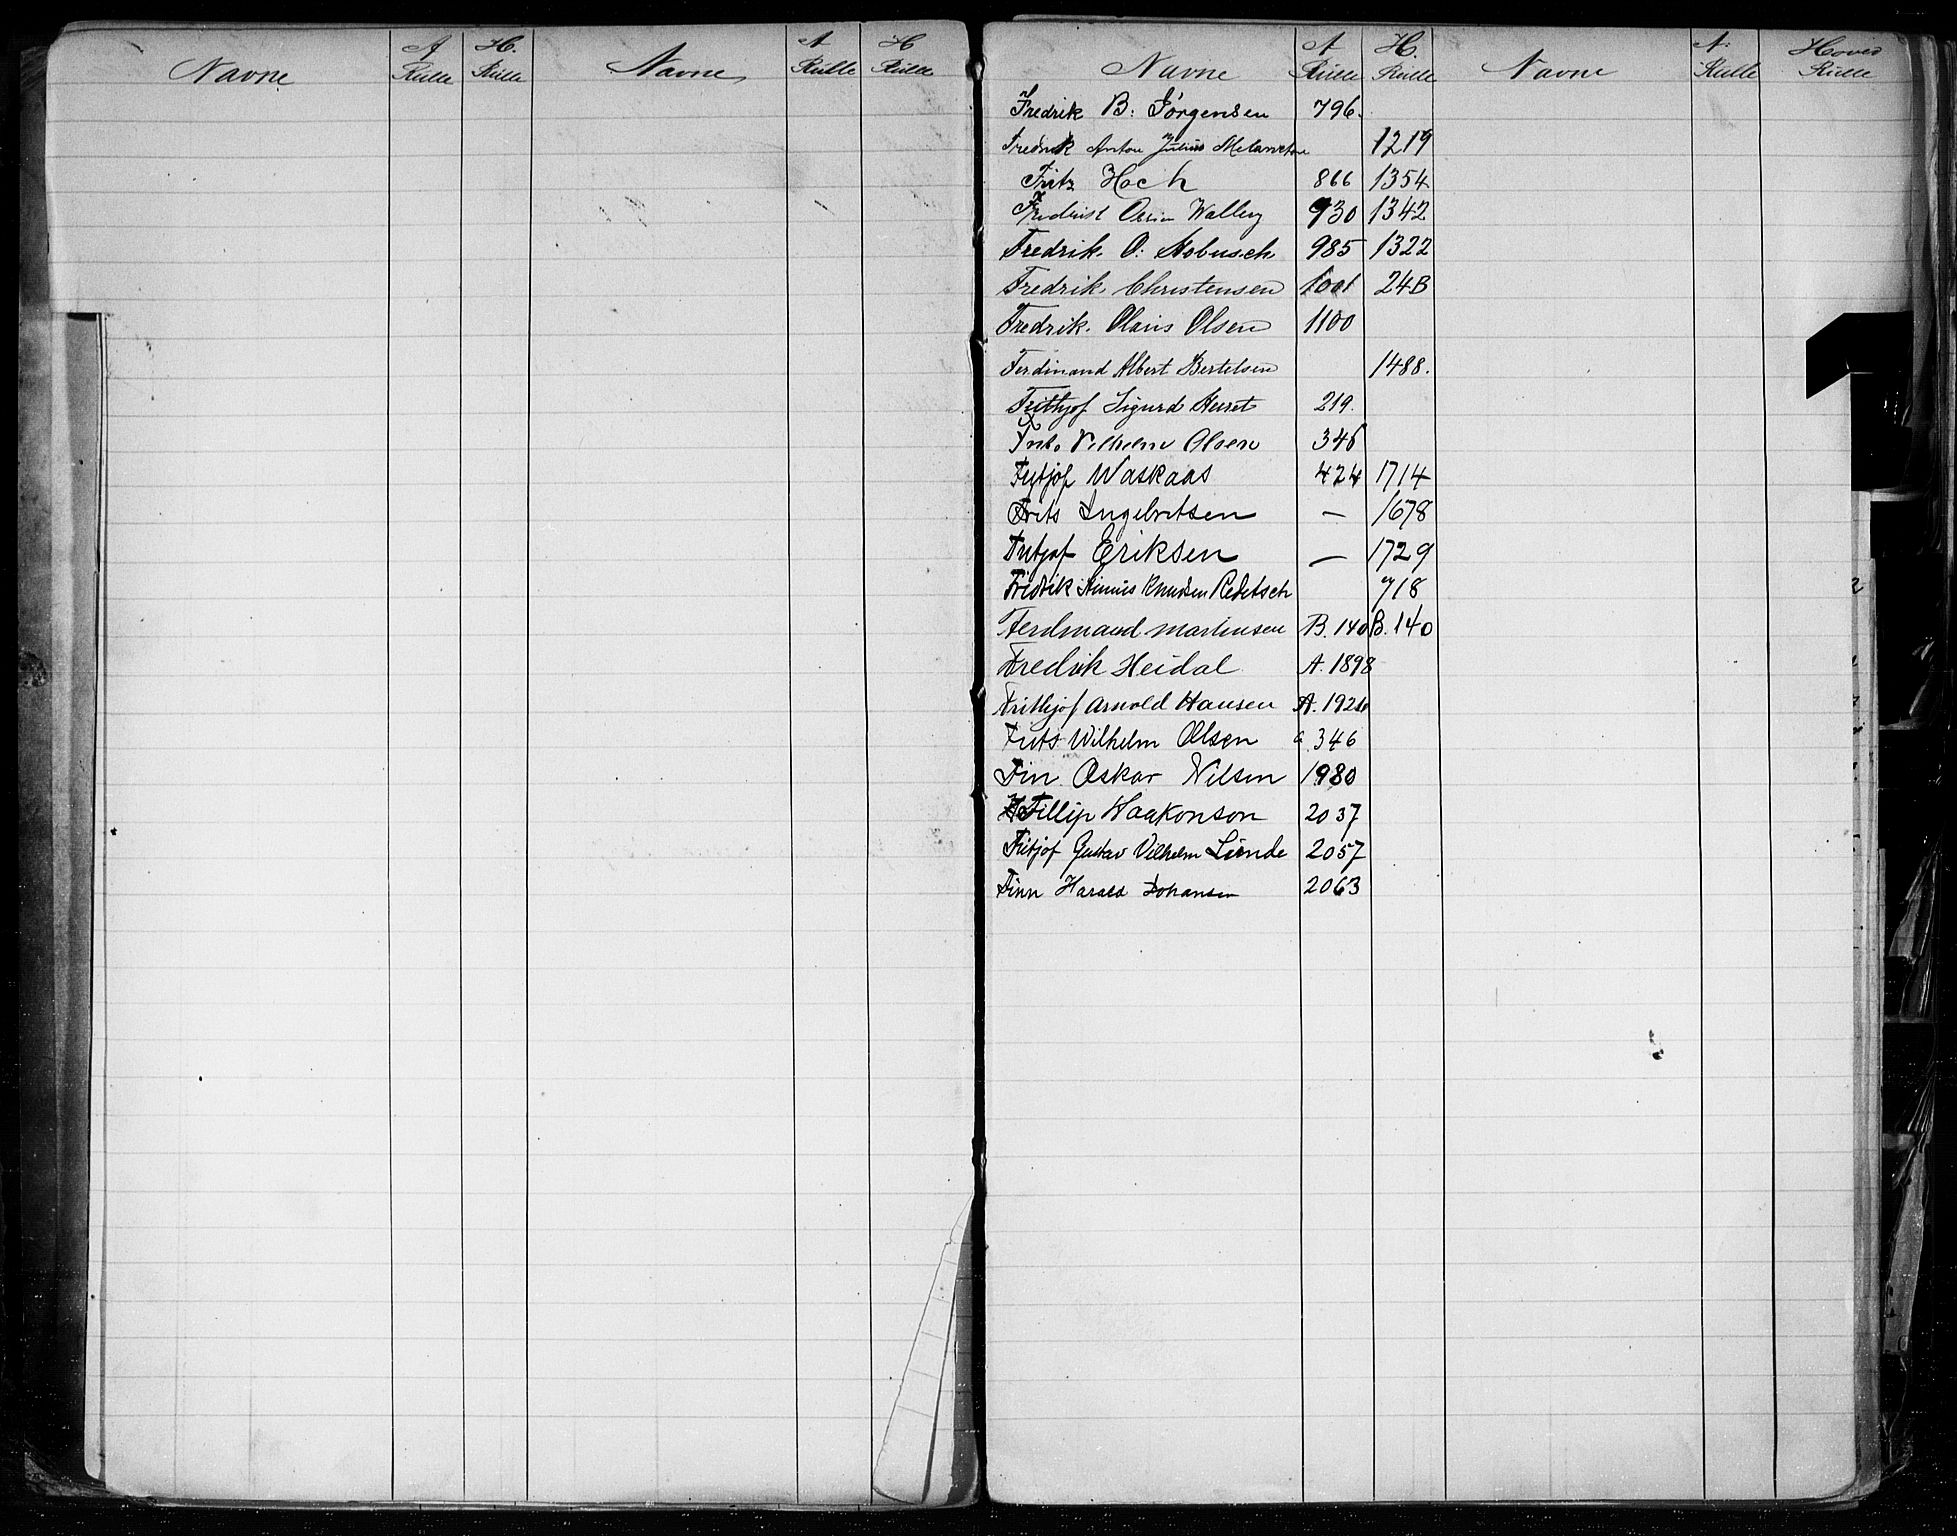 Navne A Rulle H. Rulle Navne A Rulle H Rulle
Navne A Rulle H. Rulle Navne A. Rulle Hoved Rulle
Fredrik B: Jørgensen 796.
Fredrik Anton Julius 1219
Fritz Hoch 866 1354
Ossian 930 1342
Fredrik O: 985 1322
Fredrik Christensen 1001 24B
Fredrik Olaus Olsen 1100
Ferdinand Albert Bertelsen 1488.
Frithjof Sigurd 219.
Frits Vilhelm Olsen 346
Fritjof Waskaas 424 1714
Frits Ingebretsen — 1678
Fritjof Eriksen — 1729
Fridrik Knudsen 718
Ferdinand Martinsen B. 140 B. 140
Fredrik Heidal A. 1898
Frithjof Arnold Hansen A. 192
Frits Wilhelm Olsen a. 346
Fin Oskar Nilsen 1980
Fillip Haakonson 2037
Fritjof Gustav Vilhelm Lunde 2057
Finn Harald Johansen 2063